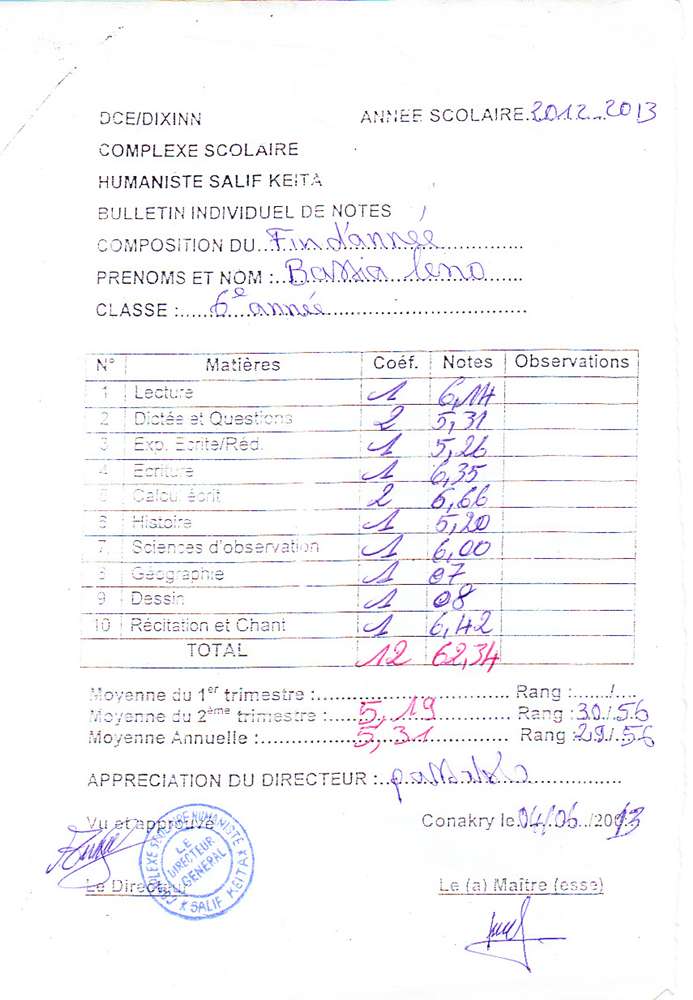 DCE/DIXINN ANNEE SCOLAIRE.2012...2013
COMPLEXE SCOLAIRE
HUMANISTE SALIF KEITA
BULLETIN INDIVIDUEL DE NOTES
COMPOSITION DU..Fin d'année
PRENOMS ET NOM :..Bassia Leno
CLASSE :.....6e année
N° Matières Coéf. Notes Observations
1 Lecture 1 6,14
2 Dictée et Questions 2 5,31
3 Exp. Ecrite/Réd. 1 5,26
4 Ecriture 1 6,35
5 Calcul écrit 2 6,66
6 Histoire 1 5,20
7 Sciences d'observation 1 6,00
8 Géographie 1 07
9 Dessin 1 08
10 Récitation et Chant 1 6,42
TOTAL 12 62,34
Moyenne du 1er trimestre :............ Rang :....../....
Moyenne du 2ème trimestre :.....5,19........ Rang :30./.56
Moyenne Annuelle :............5,31........ Rang :29./.56
APPRECIATION DU DIRECTEUR :..passable
Vu et approuvé Conakry le.04/.06../2013
COMPLEXE SCOLAIRE HUMANISTE
LE DIRECTEUR GENERAL
SALIF KEITA
Le Directeur Le (a) Maître (esse)